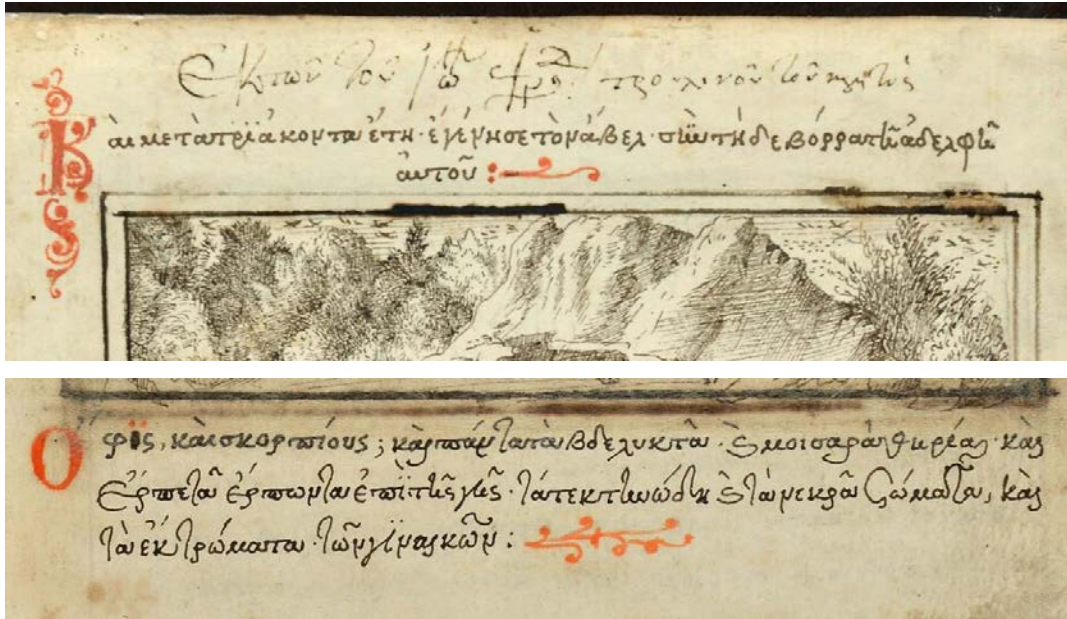 Ἐκ τῶν τοῦ
Καὶ μετὰ τρϊάκοντα ἔτη · ἐγένησε τὸν ἄβελ · σὺν τῇ δεβόρρα τῇ ἀδελφῇ
αὐτοῦ :
Ὄφϊς, καὶ σκορπίους ; καὶ πάντα τὰ βδελυκτὰ · ϗ μοισαρὰ θηρέα · καὶ
ἑρπετὰ ἕρπωντα ἐπὶ τῆς γῆς · τά τε κτινώδη ϗ τὰ νεκρὰ σώματα, καὶ
τὰ ἐκτρώματα · τῶν γϊναικῶν :